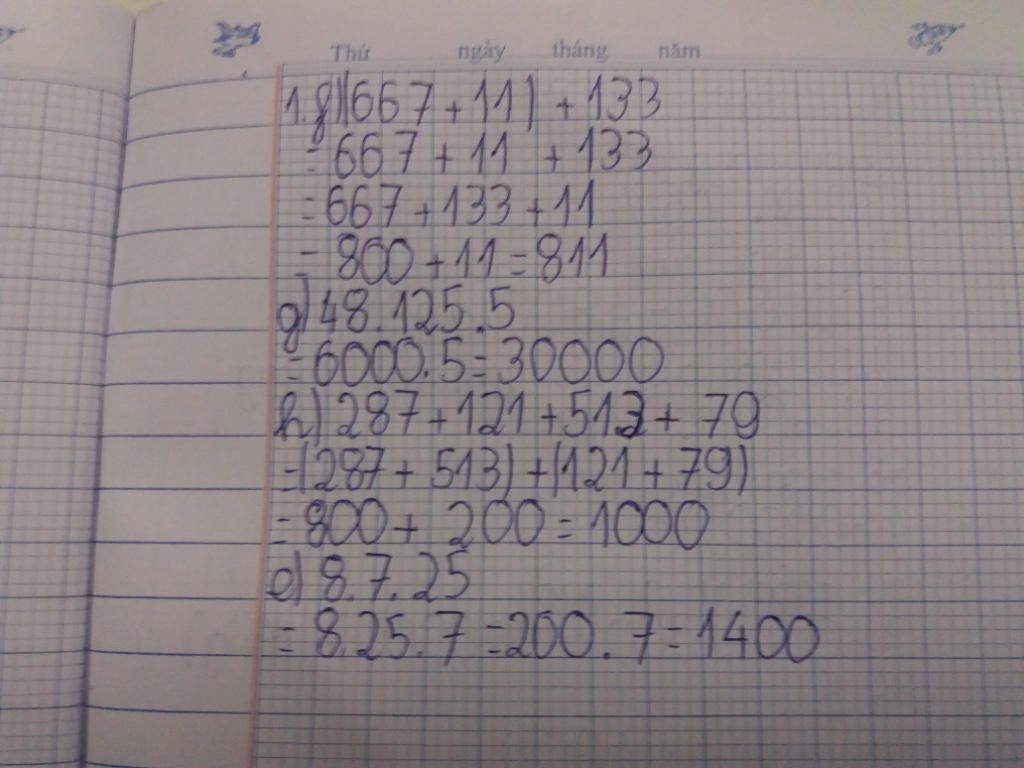 Thứ ngày tháng năm
1.f) (667 + 11) + 133
= 667 + 11 + 133
= 667 + 133 + 11
= 800 + 11 = 811
g) 48.125.5
= 6000.5 = 30000
h) 287 + 121 + 513 + 79
= (287 + 513) + (121 + 79)
= 800 + 200 = 1000
e) 8.7.25
= 8.25.7 = 200.7 = 1400